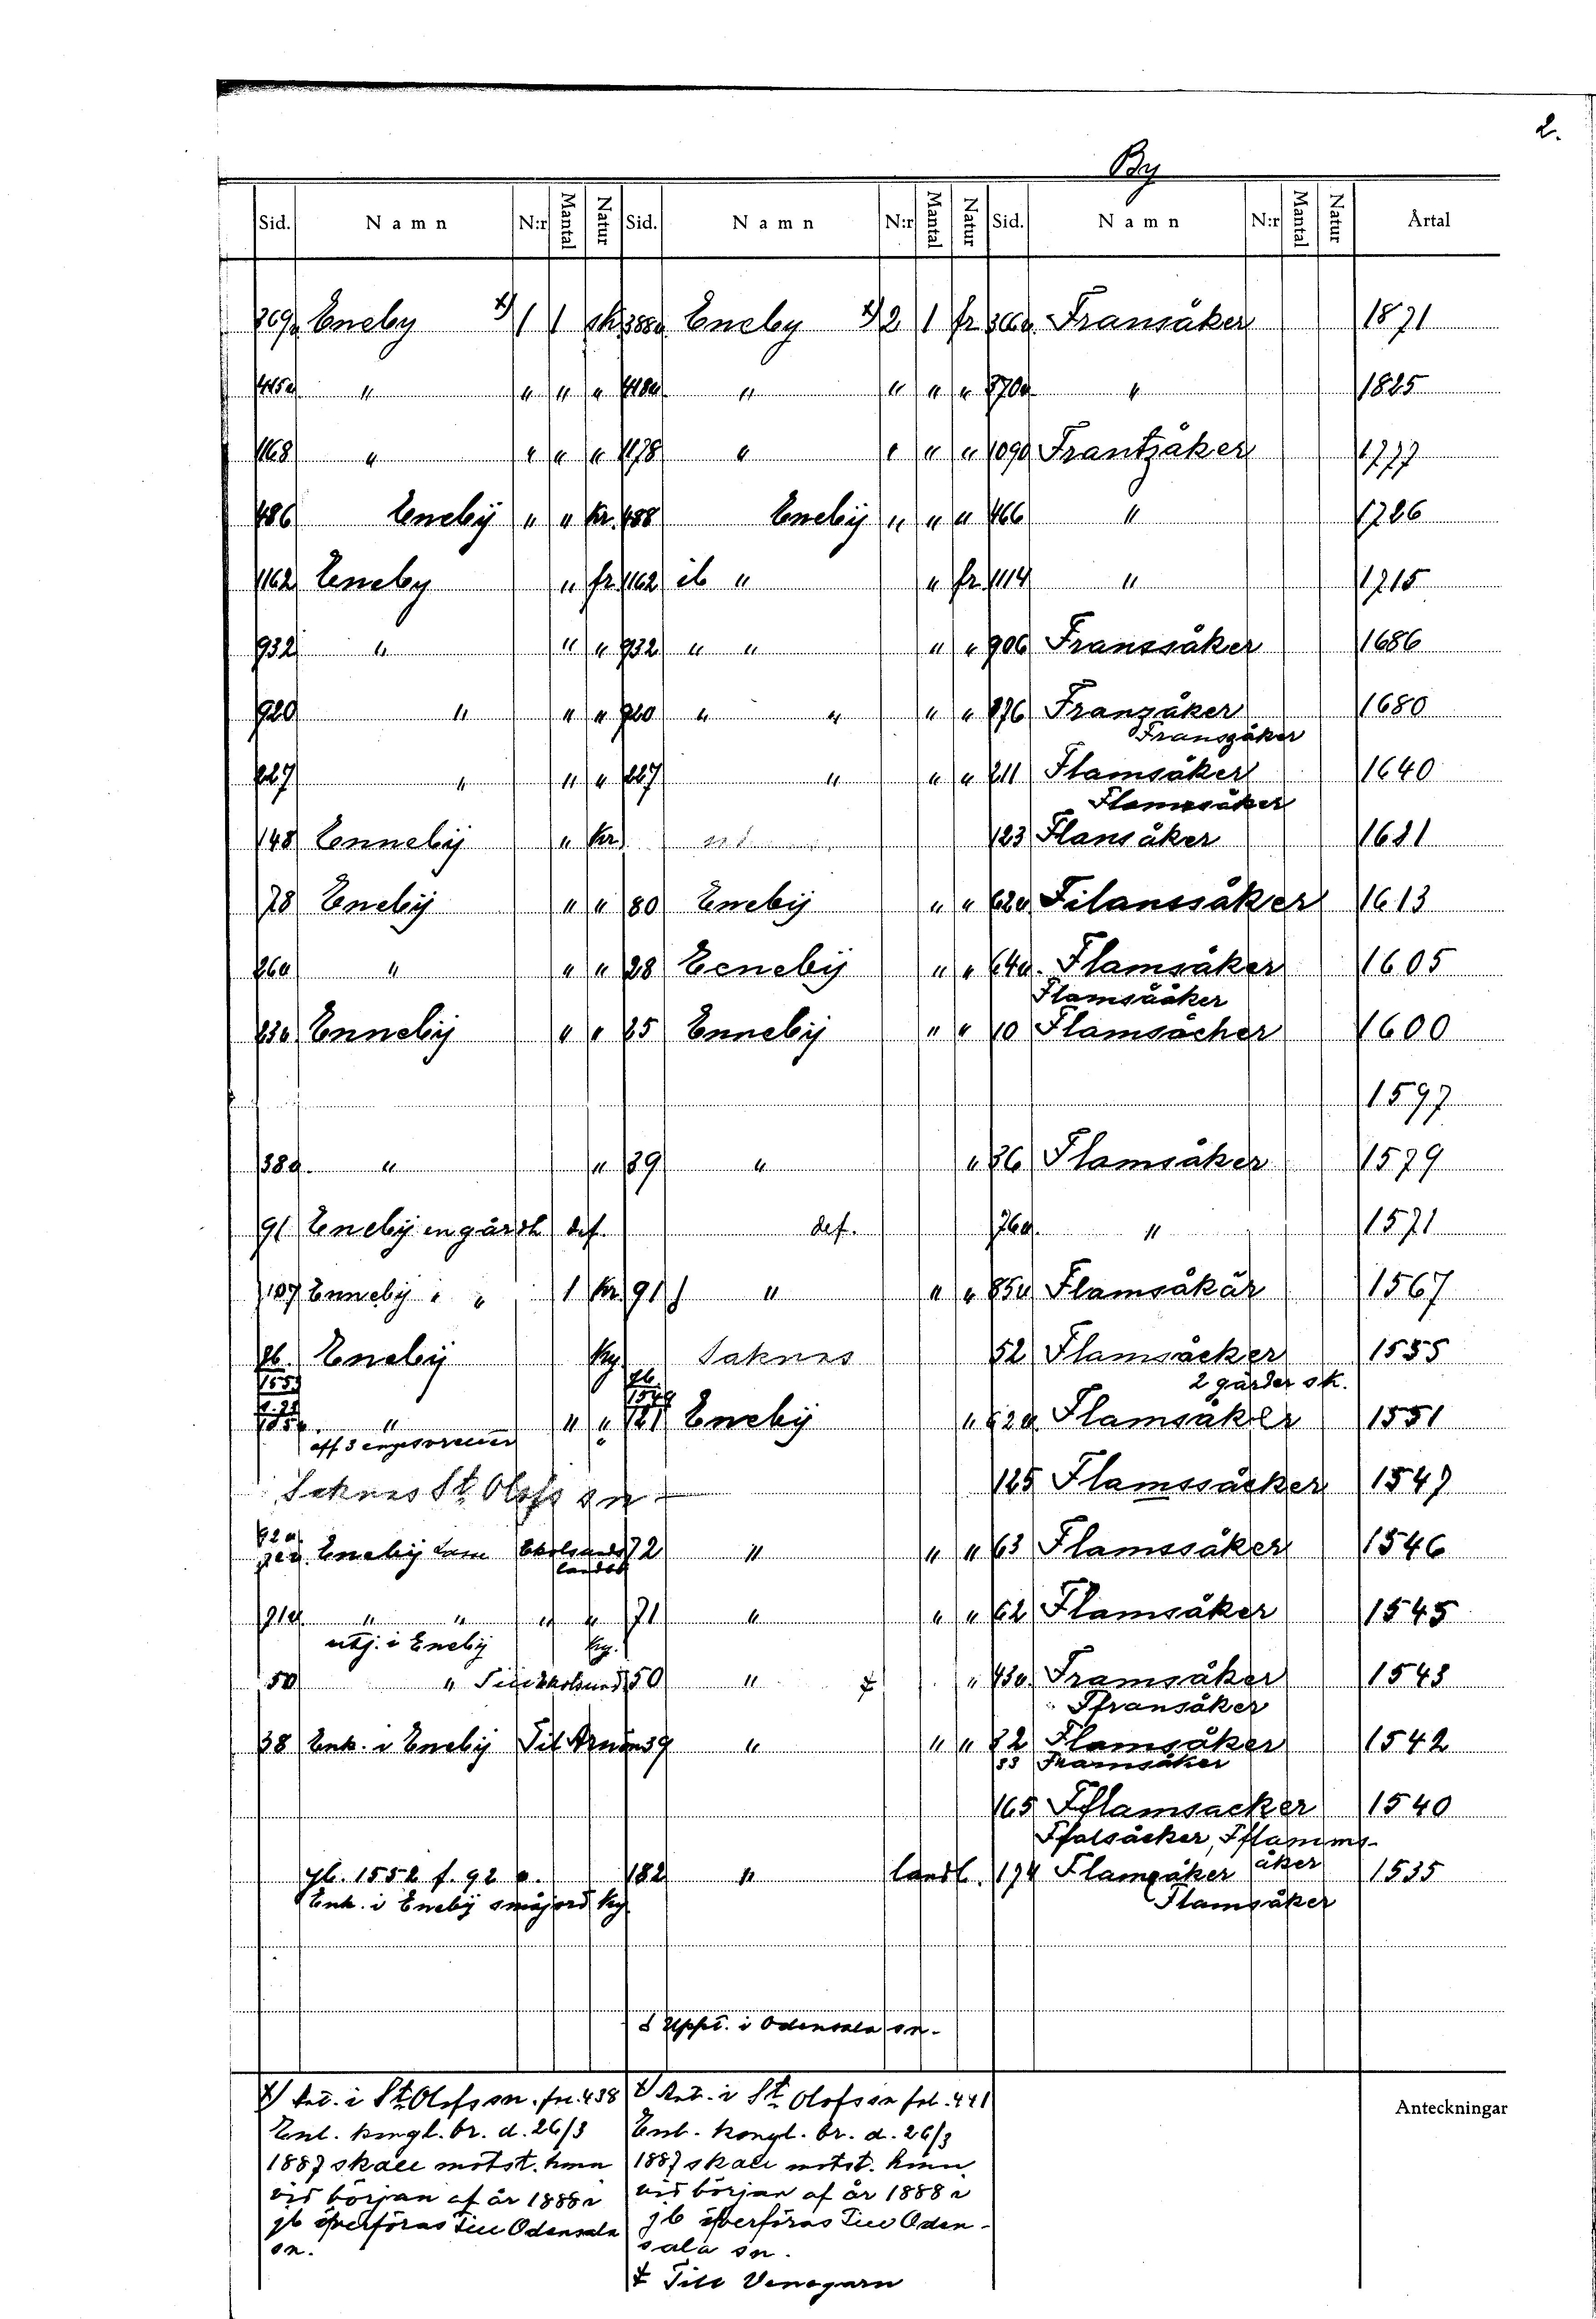 2.
By
Sid. Namn N:r Mantal Natur Sid. Namn N:r Mantal Natur Sid. Namn N:r Mantal Natur Årtal
369a Eneby x/ 1 1 sk 388a Eneby x/ 2 1 fr 366a Fransåker 1871
445a " " " " 448a " " " " 370a " 1825
1168 " " " " 1178 " " " " 1090 Frantzåker 1777
486 Enebÿ " " Kr. 488 Enebÿ " " " 466 " 1726
1162 Eneby " fr. 1162 ib " " fr. 1114 " 1715
932 " " " 932 " " " " 906 Franssåker 1686
920 " " " 920 " " " " 876 Franzåker 1680
Franszåker
227 " " " 227 " " " 211 Flamsåker 1640
Flamssåker
148 Ennebÿ " Kr. 123 Flansåker 1621
78 Enebÿ " " 80 Enebÿ " " 62a Filanssåker 1613
26a " " " 28 Eenebÿ " " 64a. Flamsåker 1605
Flamsååker
23a Ennebÿ " " 25 Ennebÿ " " 10 Flamsåcher 1600
1597
38a. " " 39 " " 36 Flamsåker 1579
91 Enebÿ en gårdh def. def. 76a. " 1571
107 Ennebÿ " " 1 Kr. 91 f " " " 85a Flamsåkär 1567
Enebÿ Ky Saknas 52 Flamsåcker 1555
1553 2 gårder sk.
" " " 121 Enebÿ " 62a Flamsåker 1551
Saknas St. Olofs sn 125 Flamssåcker 1547
92a Enebÿ 72 " " " 63 Flamssåker 1546
landbo
91a " " " " 71 " " " 62 Flamsåker 1545
utj. i Enebÿ Ky.
50 " 50 " ‡ " 43a Framsåker 1543
Ffransåker
38 Enk. i Enebÿ Til Arnöen 39 " " " 32 Flamsåker 1542
33 Framsåker
165 Fflamsacker 1540
Ffalsåcker, Fflamms-
åker
Jb. 1552 f. 92 a. 182 " landb. 174 Flamsåker 1535
Enk. i Enebÿ småjord Ky Flamsåker
f Uppt. i Odensala sn.
x/ Ant. i St. Olofs sn. fol. 438
Enl. kungl. br. d. 26/3
1887 skall motst. hmn
vid början af år 1888 i
jb öfverföras till Odensala
sn.
x/ Ant. i St. Olofs sn fol. 441
Enl. kongl. br. d. 26/3
1887 skall motst. hmn
vid början af år 1888 i
jb öfverföras till Oden-
sala sn.
‡ Till Venegarn
Anteckningar